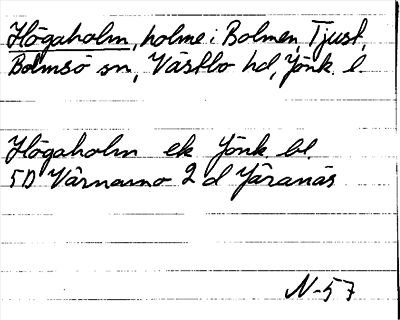 Högaholm, holme i Bolmen, Tjust,
Bolmsö sn, Västbo hd, Jönk. l.
Högaholm ek Jönk. bl.
5D Värnamo 2 d Järanäs
N-57